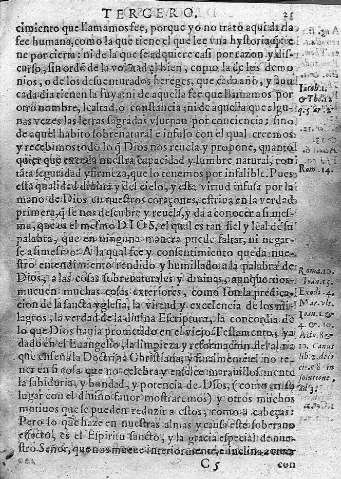 TERCERO. 21
cimiento que llamamos fee, porque yo no trato aqui de la
fee humana, como la que tiene el que lee una hystoria, que
ne por cierta: ni de la que se adquiere casi por razon y dis-
curso, sin orde de la voluntad
nios, o de los desventurados hereges, que cada año, y aun
cada dia tienen la suya: ni de aquella fee que llamamos por
otro nombre, lealtad, o constancia: ni de aquella que algu-
nas vezes las letras sagradas usurpan por conciencia: sino
de aquel habito sobrenatural e infuso con el qual creemos
y recebimos todo lo q̃ Dios nos revela y propone, quanto
quier que exceda nuestra capacidad y lumbre natural, con
tãta seguridad y firmeza, que lo tenemos por infalible. Pues
esta qualidad divina y del cielo, y esta virtud infusa por la
mano de Dios en nuestros coraçones, estriva en la verdad
primera, q̃ se nos descubre y revela, y da a conocer a si mes-
ma, que es el mesmo DIOS, el qual es tan fiel y leal de su
palabra, que en ninguna manera puede faltar, ni negar-
se a si mesmo: A la qual fee y consentimiento queda nue-
stro entendimiento rendido y humillado a la palabra de
Dios, a las cosas sobrenaturales y divinas, aunque nos
mueven muchas cosas exteriores, como son la predica-
cion de la santa yglesia, la virtud y excelencia de los mi-
lagros, la verdad de la divina Escriptura, la concordia de
lo que Dios havia prometido en el viejo Testamento, y a
dado en el Evangelio, la limpieza y reformacion del al ma
que enseña la Doctrina Christiana, y finalmente no te-
ner en si cosa que no celebre y ensalce maravillosamente
la sabiduria, y bondad, y potencia de Dios, (como en su
lugar con el divino favor mostraremos) y otros muchos
motivos que se pueden reduzir a estos, como a cabeças:
Pero lo que haze en nuestras almas y causa este soberano
effecto, es el Espiritu sancto, y la gracia especial de nue-
stro Señor, que nos mueve interiormente, e inclina
C 5 con
Iacob. 2.
Rom. 14.
Roma. 10.
Ioan. 15.
Exod. 4.
Mar. vlt.
Ioan. 5. et